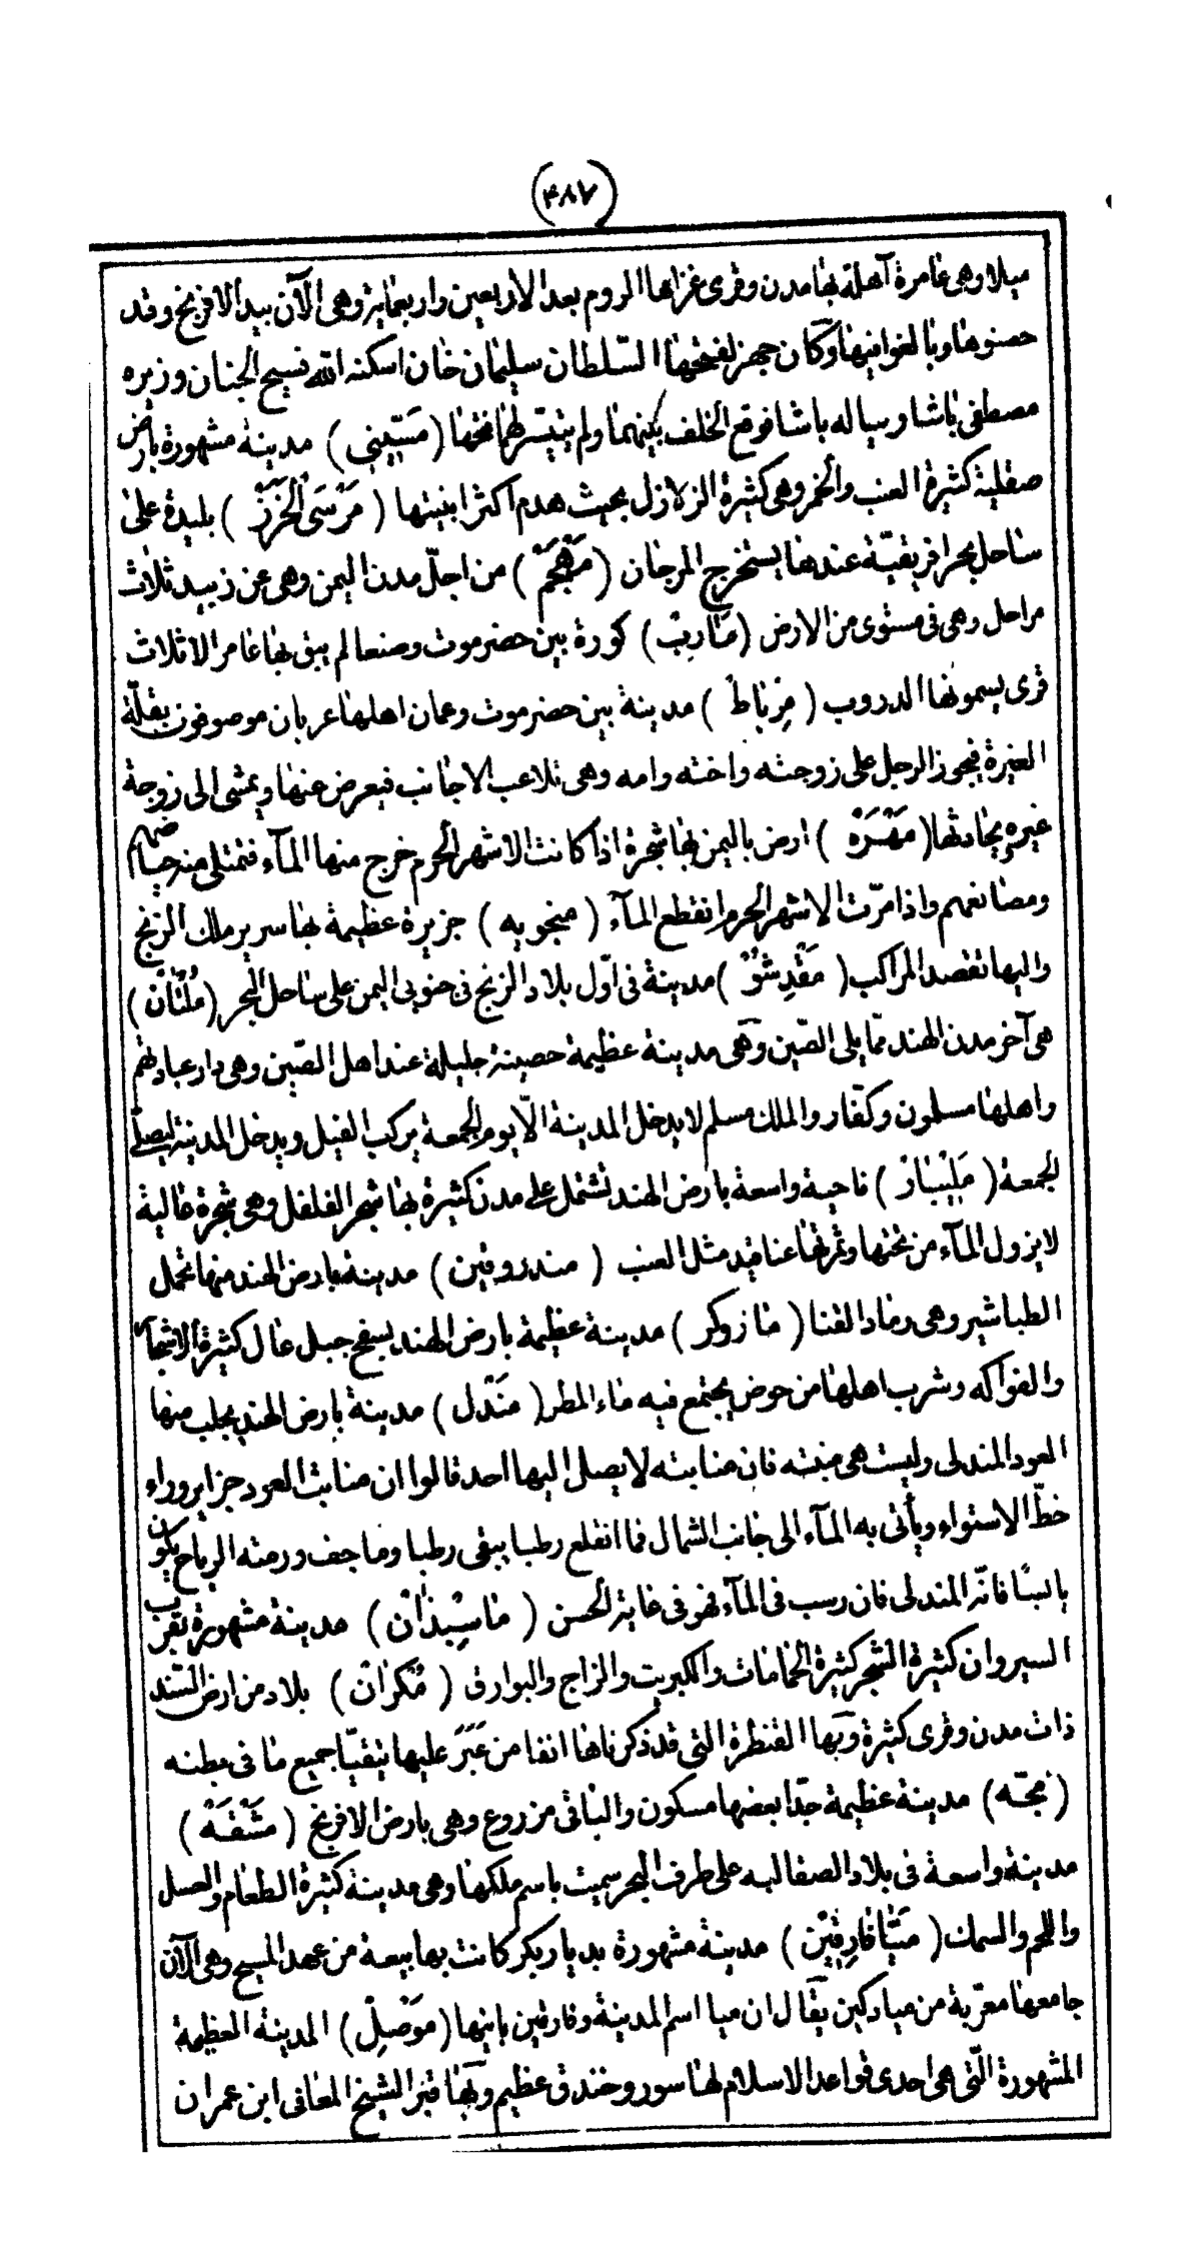 (٤٨٧)
ميلا وهى عامرة آهلة بها مدن وقرى غزاها الروم بعد الاربعين واربعمائة وهى الآن بيد الافرنج وقد
حصنوها وبالغوا فيها وكان جهز لفتحها السّلطان سليمان خان اسكنه الله فسيح الجنان وزيره
مصطفى باشا وبياله باشا فوقع الخلف بينهما ولم يتيسّر لهما فتحها (مَسّيِنى) مدينة مشهورة بارض
صقلية كثيرة العنب والخمر وهى كثيرة الزلازل بحيث هدم اكثر ابنيتها (مَرْسَى الْخَرَزْ) بليدة على
ساحل بحر افريقيّة عندها يستخرج المرجان (مَهْجَمْ) من اجلّ مدن اليمن وهى عن زبيد ثلاث
مراحل وهى فى مستوى من الارض (مَاَرِبْ) كورة بين حضرموت وصنعا لم يبق بها عامر الا ثلاث
قرى يسمونها الدروب (مِرْبَاطْ) مدينة بين حضرموت وعمان اهلها عربان موصوفون بقلّة
الغيرة فيجوز الرجل على زوجته واخته وامه وهى تلاعب الاجانب فيعرض عنها ويمشى الى زوجة
غيره يحادثها (مَهْرَهْ) ارض باليمن بها شجرة اذا كانت الاشهر الحرم خرج منها المآء فتمتلى منه حياضهم
ومصانعهم واذا مرّت الاشهر الحرم انقطع المآء (منجويه) جزيرة عظيمة بها سرير ملك الزنج
واليها تقصد المراكب (مَقْدِشُوْ) مدينة فى اوّل بلاد الزنج فى جنوبى اليمن على ساحل البحر (مُلْتَانْ)
هى آخر مدن الهند ممّا يلى الصّين وهى مدينة عظيمة حصينة جليلة عند اهل الصّين وهى دار عبادتهم
واهلها مسلمون وكفّار والملك مسلم لا يدخل المدينة الّا يوم الجمعة يركب الفيل ويدخل المدينة ليصلّى
الجمعة (مَلِيْبَارْ) ناحية واسعة بارض الهند تشتمل على مدن كثيرة بها شجر الفلفل وهى شجرة عالية
لا يزول المآء من تحتها وثمرتها عناقيد مثل العنب (مندروقين) مدينة بارض الهند منها تحمل
الطباشير وهى رماد القنا (مازوكر) مدينة عظيمة بارض الهند بسفح جبل عال كثيرة الاشجار
والفواكه وشرب اهلها من حوض يجتمع فيه ماء المطر (مَنْدَل) مدينة بارض الهند يجلب منها
العود المندلى وليست هى منبته فان منابته لا يصل اليها احد قالوا ان منابت العود جزاير وراء
خطّ الاستواء ويأتى به المآء الى جانب الشمال فما انقلع رطبا يبقى رطبا وما جف ورمته الرياح يكون
يابسًا فانّه المندلى فان رسب فى المآء فهو فى غاية الحسن (مَاسِبْذَانْ) مدينة مشهورة بقرب
السيروان كثيرة الشجر كثيرة الحمامات والكبريت والزاج والبوارق (مُكْرَانْ) بلاد من ارض السّند
ذات مدن وقرى كثيرة وبها القنطرة التى قد ذكرناها انفا من عَبَرَ عليها يتقيّا جميع ما فى بطنه
(مجّه) مدينة عظيمة جدّا بعضها مسكون والباقى مزروع وهى بارض الافرنج (مَشْقَهْ)
مدينة واسعة فى بلاد الصقالبه على طرف البحر سميت باسم ملكها وهى مدينة كثيرة الطعام والعسل
واللحم والسمك (مَيّافَارِقِيْن) مدينة مشهورة بديار بكر كانت بها بيعة من عهد المسيح وهى الآن
جامعها معرّبة من مياركين يقال ان ميا اسم المدينة وفارقين بانيها (مَوْصِلْ) المدينة العظيمة
المشهورة الّتى هى احدى قواعد الاسلام لها سور وخندق عظيم وبها قبر الشيخ المعافى ابن عمران